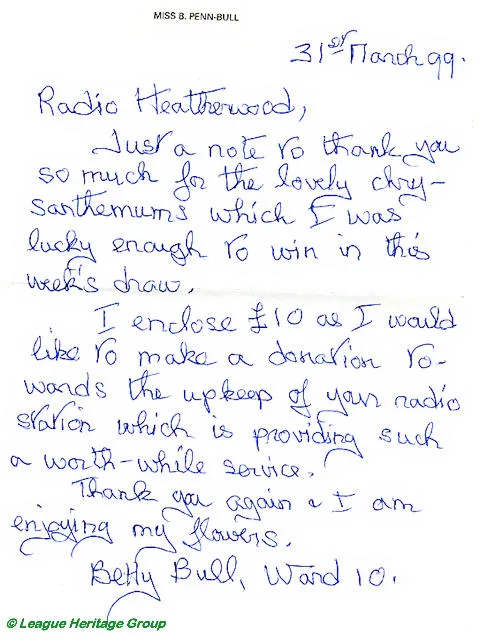 MISS B. PENN-BULL
31st March 99.
Radio Heatherwood,
Just a note to thank you
so much for the lovely chry-
santhemums which I was
lucky enough to win in this
week's draw.
I enclose £10 as I would
like to make a donation to-
wards the upkeep of your radio
station which is providing such
a worth-while service.
Thank you again & I am
enjoying my flowers.
Betty Bull, Ward 10.
© League Heritage Group